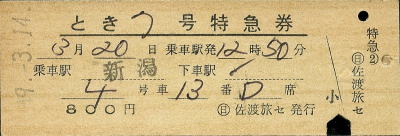 とき7号特急券
3月20日 乗車駅発12時50分
乗車駅 新潟 下車駅
4号車13番D席
800円 ㊐佐渡旅セ 発行
9.-3.14
特急(2)
㊐佐渡旅セ
小